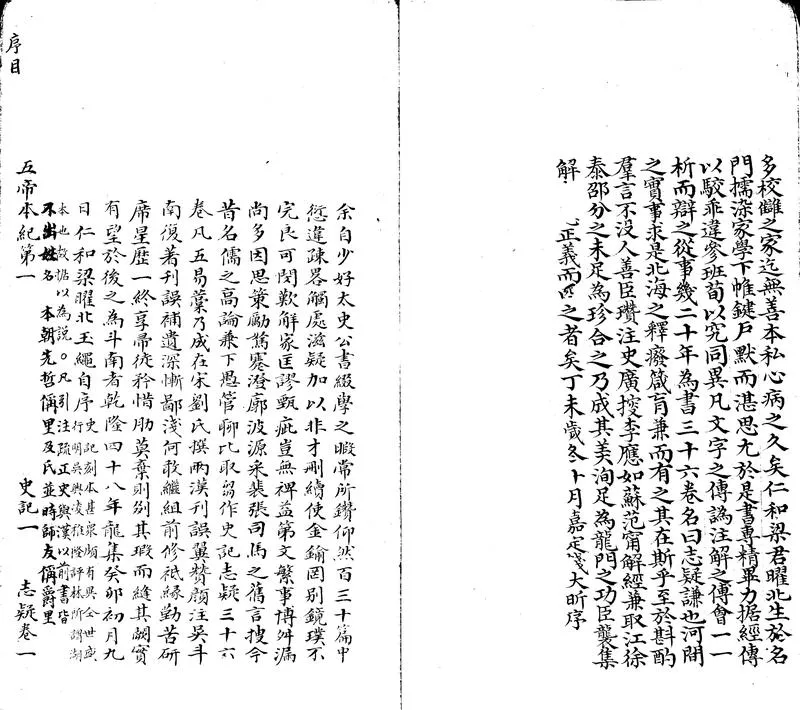 多校讎之家迄無善本私心病之久矣仁和梁君曜北生於名
門擩染家學下帷鍵戶默而湛思尤於是書專精畢力据經傳
以駮乖違參班荀以究同異凡文字之傳譌注解之傅會一一
析而辯之從事幾二十年為書三十六卷名曰志疑謙也河間
之實事求是北海之釋癈箴肓兼而有之其在斯乎至於斟酌
羣言不没人善臣瓚注史廣搜李應如蘇范甯解經兼取江徐
泰邵分之未足為珍合之乃成其美洵足為龍門之功臣襲集
解 正義而四之者矣丁未歲冬十月嘉定錢大昕序
余自少好太史公書綴學之暇常所鑽仰然百三十篇中
愆違疎畧觸處滋疑加以非才刪續使金鍮罔別鏡璞不
完良可閔歎解家匡謬甄疵豈無裨益第文繁事博舛漏
尚多因思策勵駑蹇澄廓波源采裴張司馬之舊言搜今
昔名儒之高論兼下愚管聊比取芻作史記志疑三十六
卷凡五易藁乃成在宋劉氏撰兩漢刊誤翼贊顏注吳斗
南復著刊誤補遺深慚鄙淺何敢繼組前修祇緣勤苦研
席星歷一終享帚徒矜惜肋莫棄則刓其瑕而縫其闕實
有望於後之為斗南者乾隆四十八年龍集癸卯初月九
日仁和梁曜北玉繩自序 史記刻本甚衆頗有異仝世盛
行明吳興凌稚隆評林所謂湖
本也故据以為說。凡引注疏正史與漢以前書皆
不出姓名 本朝先哲偁里及氏並時師友偁爵里
五帝本紀第一 史記一 志疑卷一
序目